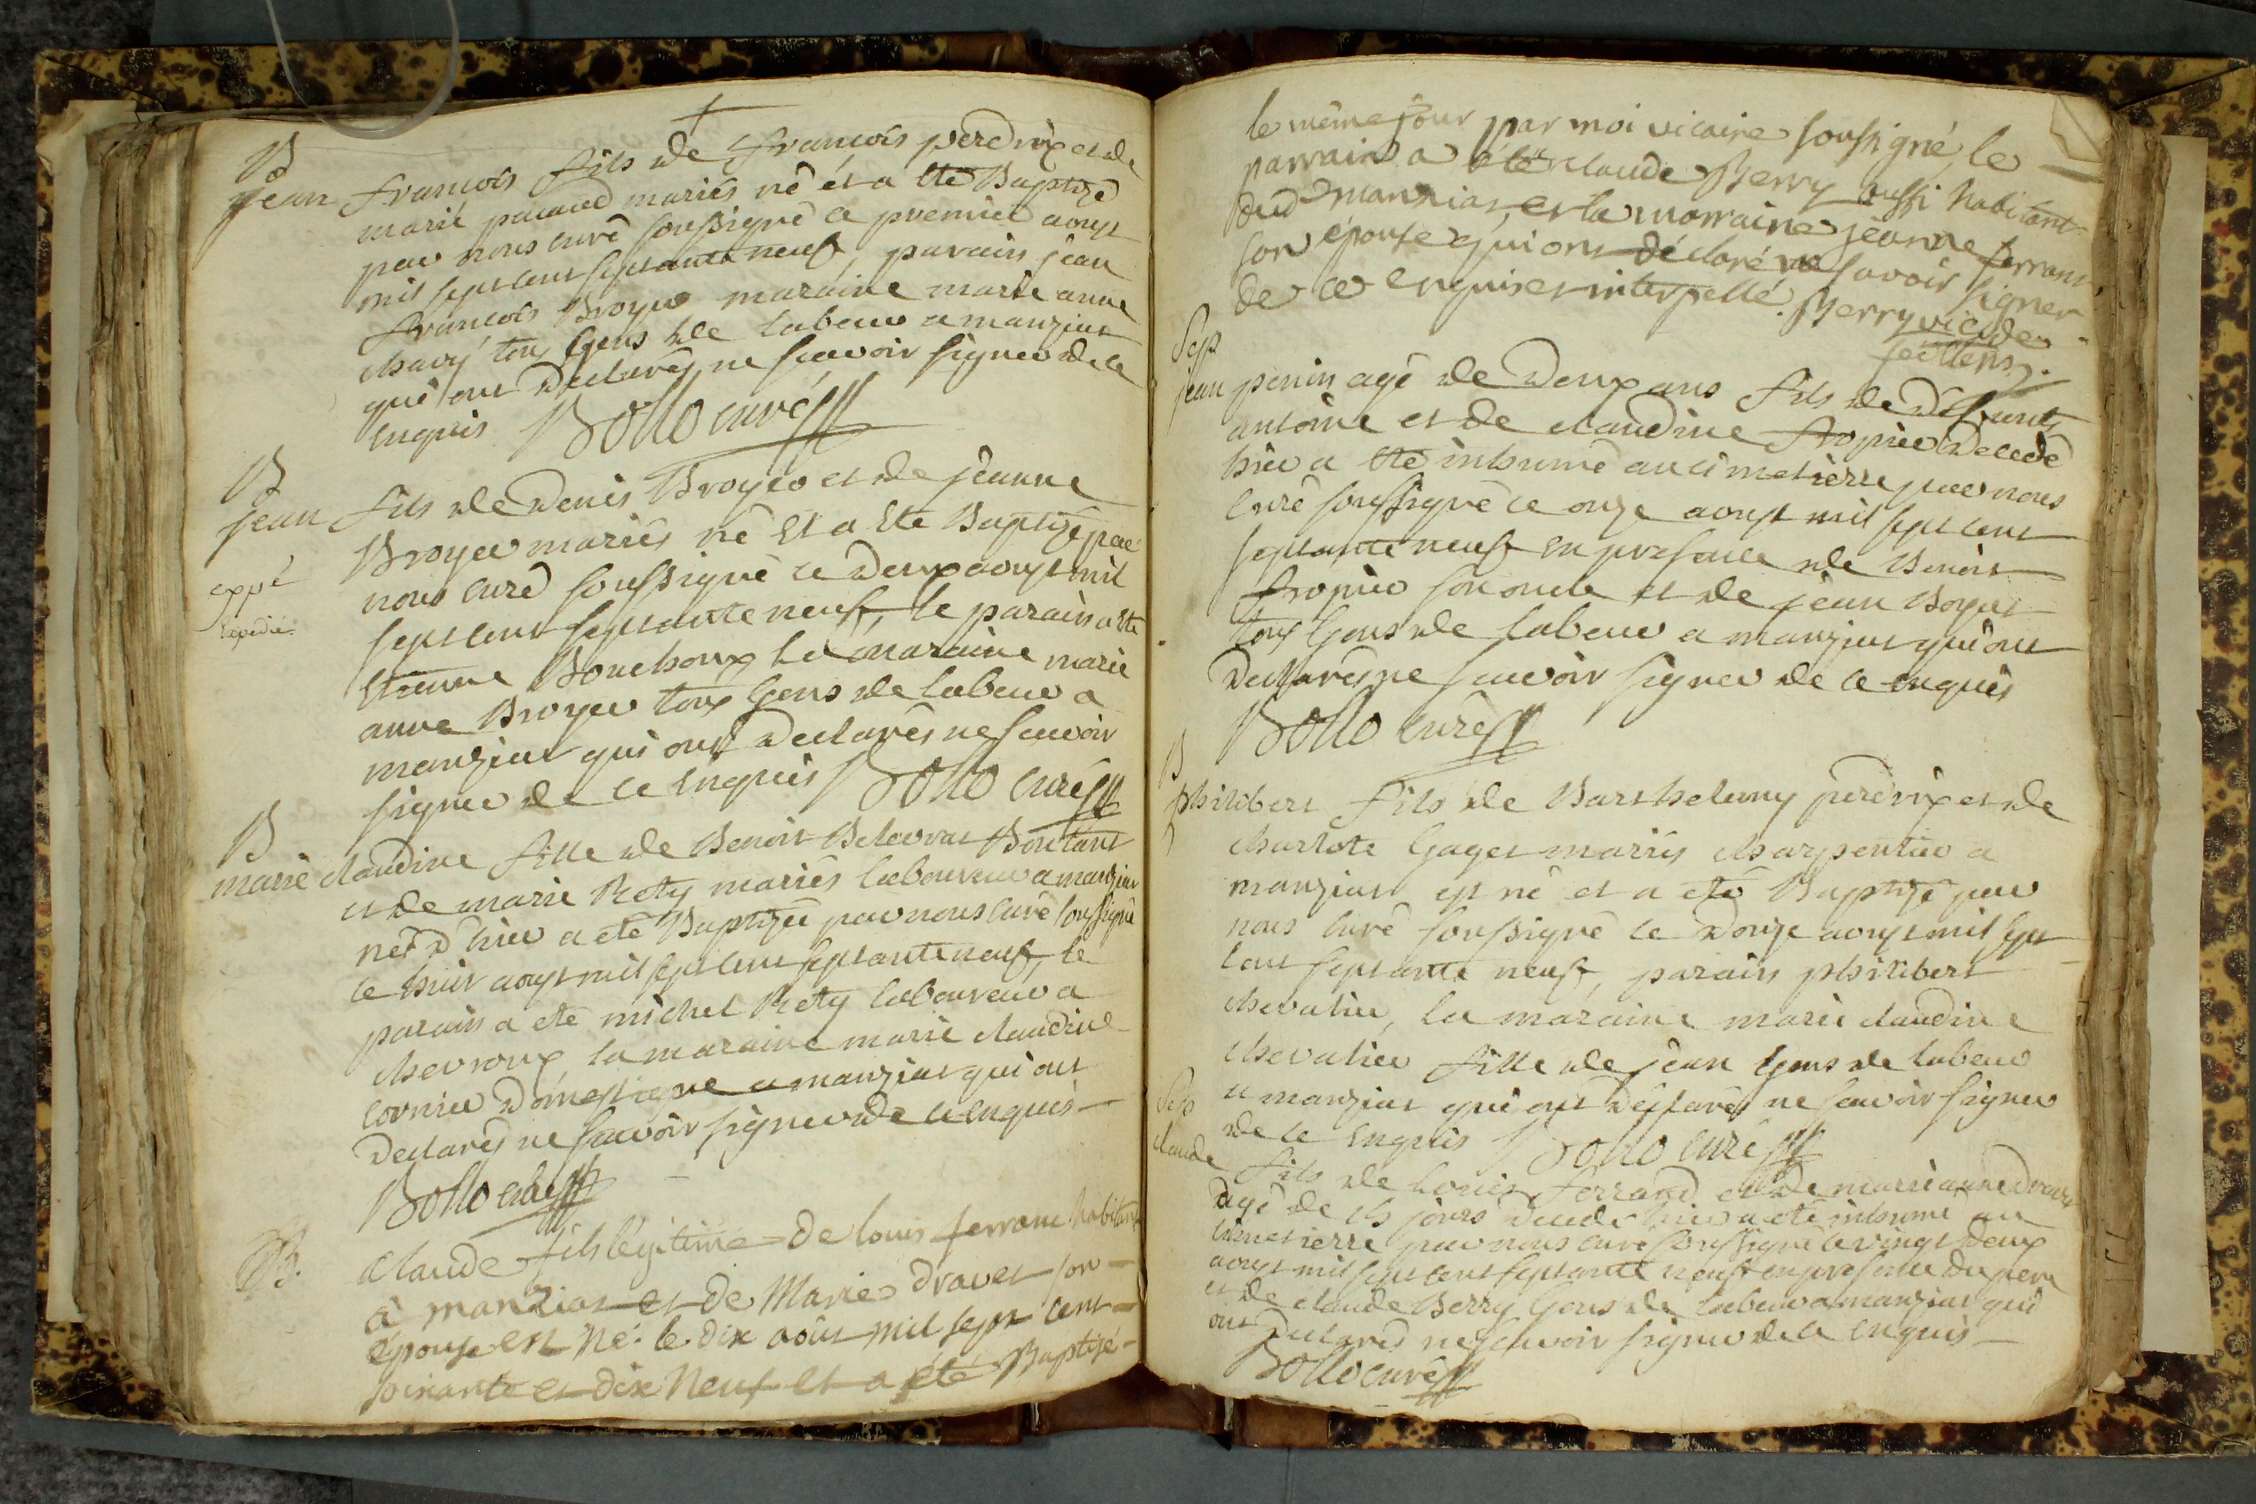 B
jean françois fils de françois perdrix et de
marie pacaud mariés né et a été Baptizé
par nous curé soussigné ce premier aoust
mil sept cent septante neuf, parain jean
françois Broyer maraine marie anne
chavy tous gens de labeur a manziat
qui ont declarés ne scavoir signer de ce
enquis Bollo curé
B
jean fils de denis Broyer et de jeanne
Broyer mariés né et a été Baptizé par
nous curé soussigné ce deux aoust mil
sept cent septante neuf, le parain a été
etienne Bouchoux la maraine marie
anne Broyer tous gens de labeur a
manziat qui ont declarés ne scavoir
signer de ce enquis Bollo curé
expé
expedié
B
marie claudine fille de Benoit Belouvrat
et de marie Rety mariés laboureur a manziat
née d'hier a été Baptizée par nous curé soussigné
ce huit aoust mil sept cent septante neuf, le
parain a été michel Rety laboureur a
chevroux, la maraine marie claudine
cornier domestique a manziat qui ont
declarés ne scavoir signer de ce enquis
Bollo curé
B.
claude fils légitime de louis ferrant habitant
à manziat et de Marie dravet son
épouse est né le dix août mil sept cent
soixante et dix Neuf et a été Baptisé
le même jour par moi vicaire soussigné, le
parrain a été claude Berry aussi habitant
dud manziat, et la marraine jeanne ferrant
son épouse qui ont déclaré ne savoir signer
de ce enquis et interpellé. Berry vic. de
feillens.
Sep
jean penin agé de deux ans fils de défunts
antoine et de claudine fropier decedé
hier a été inhumé au cimetierre par nous
curé soussigné ce onze aoust mil sept cent
septante neuf en presence de Benoit
fropier son oncle et de jean Boyat
tous gens de labeur a manziat qui ont
declarés ne scavoir signer de ce enquis
Bollo curé
B
philibert fils de Barthelemy perdrix et de
charlote Gaget mariés charpentier a
manziat est né et a été Baptizé par
nous curé soussigné ce douze aoust mil sept
cent septante neuf, parain philibert
chevalier, la maraine marie claudine
chevalier fille de jean gens de labeur
a manziat qui ont declarés ne scavoir signer
de ce enquis Bollo curé
Sep
claude fils de louis ferrand et de marie anne
agé de jours decedé hier a été inhumé au
cimetierre par nous curé soussigné ce vingt deux
aoust mil sept cent septante neuf en presence du pere
et de claude Berry gens de labeur a manziat qui
ont declarés ne scavoir signer de ce enquis
Bollo curé